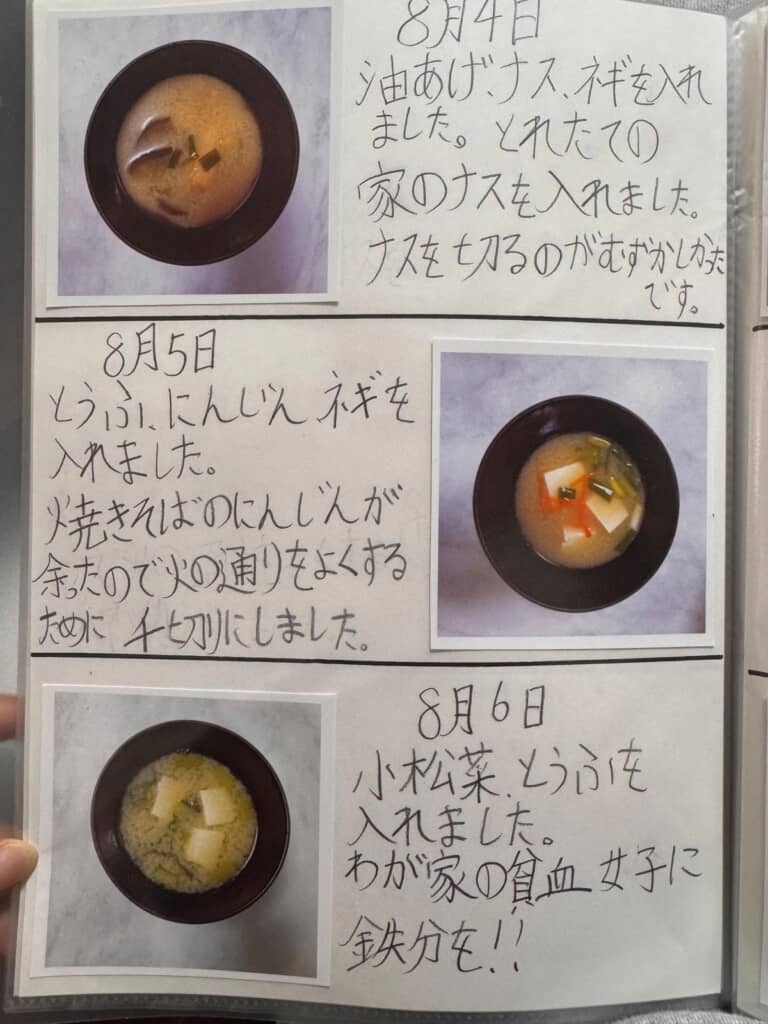 8月4日
油あげ、ナス、ネギを入れ
ました。とれたての
家のナスを入れました。
ナスを切るのがむずかしかった
です。
8月5日
とうふ、にんじん、ネギを
入れました。
焼きそばのにんじんが
余ったので火の通りをよくする
ために千切りにしました。
8月6日
小松菜、とうふを
入れました。
わが家の貧血女子に
鉄分を!!